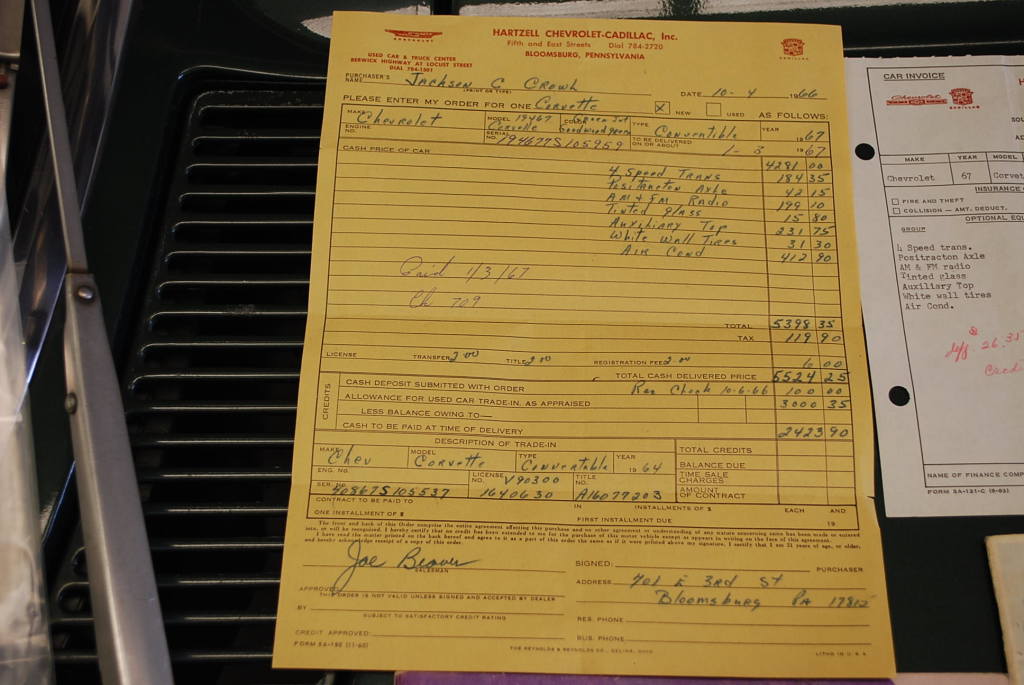 HARTZELL CHEVROLET-CADILLAC, Inc.
Fifth and East Streets Dial 784-2720
BLOOMSBURG, PENNSYLVANIA
CHEVROLET
CADILLAC
USED CAR & TRUCK CENTER
BERWICK HIGHWAY AT LOCUST STREET
DIAL 784-1501
PURCHASER'S NAME Jackson C Crowl DATE 10-4 1966
(PRINT OR TYPE)
PLEASE ENTER MY ORDER FOR ONE Corvette X NEW USED AS FOLLOWS:
MAKE Chevrolet MODEL 19467 Corvette COLOR Goodwood Green TYPE Convertible YEAR 1967
ENGINE NO. SERIAL NO. 194677S105959 TO BE DELIVERED ON OR ABOUT 1-3 1967
CASH PRICE OF CAR 4281 00
4 Speed Trans 184 35
Positraction Axle 42 15
AM & FM Radio 199 10
Tinted Glass 15 80
Auxiliary Top 231 75
White Wall Tires 31 30
Air Cond 412 90
Paid 1/3/67
Ck 709
TOTAL 5398 35
TAX 119 90
LICENSE TRANSFER 2.00 TITLE 2.00 REGISTRATION FEE 2.00 6 00
TOTAL CASH DELIVERED PRICE 5524 25
CREDITS
CASH DEPOSIT SUBMITTED WITH ORDER Check 10-6-66 100 00
ALLOWANCE FOR USED CAR TRADE-IN, AS APPRAISED 3000 35
LESS BALANCE OWING TO—
CASH TO BE PAID AT TIME OF DELIVERY 2423 90
DESCRIPTION OF TRADE-IN
MAKE Chev MODEL Corvette TYPE Convertable YEAR 1964
ENG. NO. LICENSE NO. V90300 TITLE NO.
SER. NO. 40867S105537 1640630 A16077203
TOTAL CREDITS
BALANCE DUE
TIME SALE CHARGES
AMOUNT OF CONTRACT
CONTRACT TO BE PAID TO IN INSTALLMENTS OF $ EACH AND
ONE INSTALLMENT OF $ FIRST INSTALLMENT DUE 19
The front and back of this Order comprise the entire agreement affecting this purchase and no other agreement or understanding of any nature concerning same has been made or entered
into, or will be recognized. I hereby certify that no credit has been extended to me for the purchase of this motor vehicle except as appears in writing on the face of this agreement.
I have read the matter printed on the back hereof and agree to it as a part of this order the same as if it were printed above my signature. I certify that I am 21 years of age, or older,
and hereby acknowledge receipt of a copy of this order.
Joe Brown
SALESMAN
SIGNED: PURCHASER
APPROVED:
THIS ORDER IS NOT VALID UNLESS SIGNED AND ACCEPTED BY DEALER
ADDRESS 701 E 3rd St
Bloomsburg PA 17815
BY
SUBJECT TO SATISFACTORY CREDIT RATING
RES. PHONE
CREDIT APPROVED: BUS. PHONE
FORM SA-186 (11-60) THE REYNOLDS & REYNOLDS CO., CELINA, OHIO LITHO IN U.S.A.
CAR INVOICE
Chevrolet
CADILLAC
MAKE YEAR MODEL
Chevrolet 67
INSURANCE
FIRE AND THEFT
COLLISION — AMT. DEDUCT.
GROUP
4 Speed trans.
Positracton Axle
AM & FM radio
Tinted glass
Auxiliary Top
White wall tires
Air Cond.
26.35
NAME OF FINANCE
FORM SA-121-C